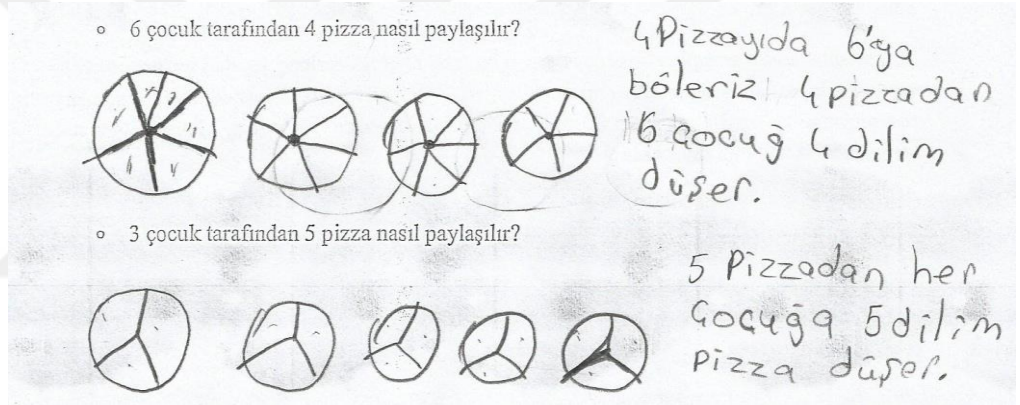 6 çocuk tarafından 4 pizza nasıl paylaşılır?
4 Pizzayıda 6'ya
böleriz 4 pizzadan
6 çocuğ 4 dilim
düşer.
3 çocuk tarafından 5 pizza nasıl paylaşılır?
5 Pizzadan her
Çocuğa 5 dilim
pizza düşer.